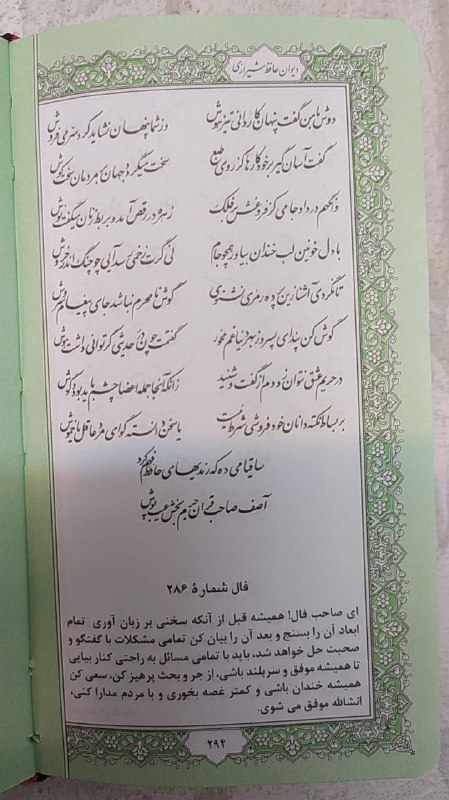 دیوان حافظ شیرازی
دوش با من گفت پنهان کاردانی تیزهوش وز شما پنهان نشاید کرد سر می فروش
گفت آسان گیر بر خود کارها کز روی طبع سخت میگیرد جهان بر مردمان سخت کوش
وانگهم در داد جامی کز فروغش بر فلک زهره در رقص آمد و بربط زنان میگفت نوش
با دل خونین لب خندان بیاور همچو جام نی گرت زخمی رسد آیی چو چنگ اندر خروش
تا نگردی آشنا زین پرده رمزی نشنوی گوش نامحرم نباشد جای پیغام سروش
گوش کن پند ای پسر وز بهر دنیا غم مخور گفتمت چون در حدیثی گر توانی داشت هوش
در حریم عشق نتوان زد دم از گفت و شنید زانکه آنجا جمله اعضا چشم باید بود و گوش
بر بساط نکته دانان خود فروشی شرط نیست یا سخن دانسته گو ای مرد عاقل یا خموش
ساقیا می ده که رندیهای حافظ فهم کرد
آصف صاحب قران جرم بخش عیب پوش
فال شمارهٔ ۲۸۶
ای صاحب فال! همیشه قبل از آنکه سخنی بر زبان آوری تمام
ابعاد آن را بسنج و بعد آن را بیان کن تمامی مشکلات با گفتگو و
صحبت حل خواهد شد، باید با تمامی مسائل به راحتی کنار بیایی
تا همیشه موفق و سربلند باشی، از جر و بحث پرهیز کن، سعی کن
همیشه خندان باشی و کمتر غصه بخوری و با مردم مدارا کنی،
انشالله موفق می شوی.
۲۹۴